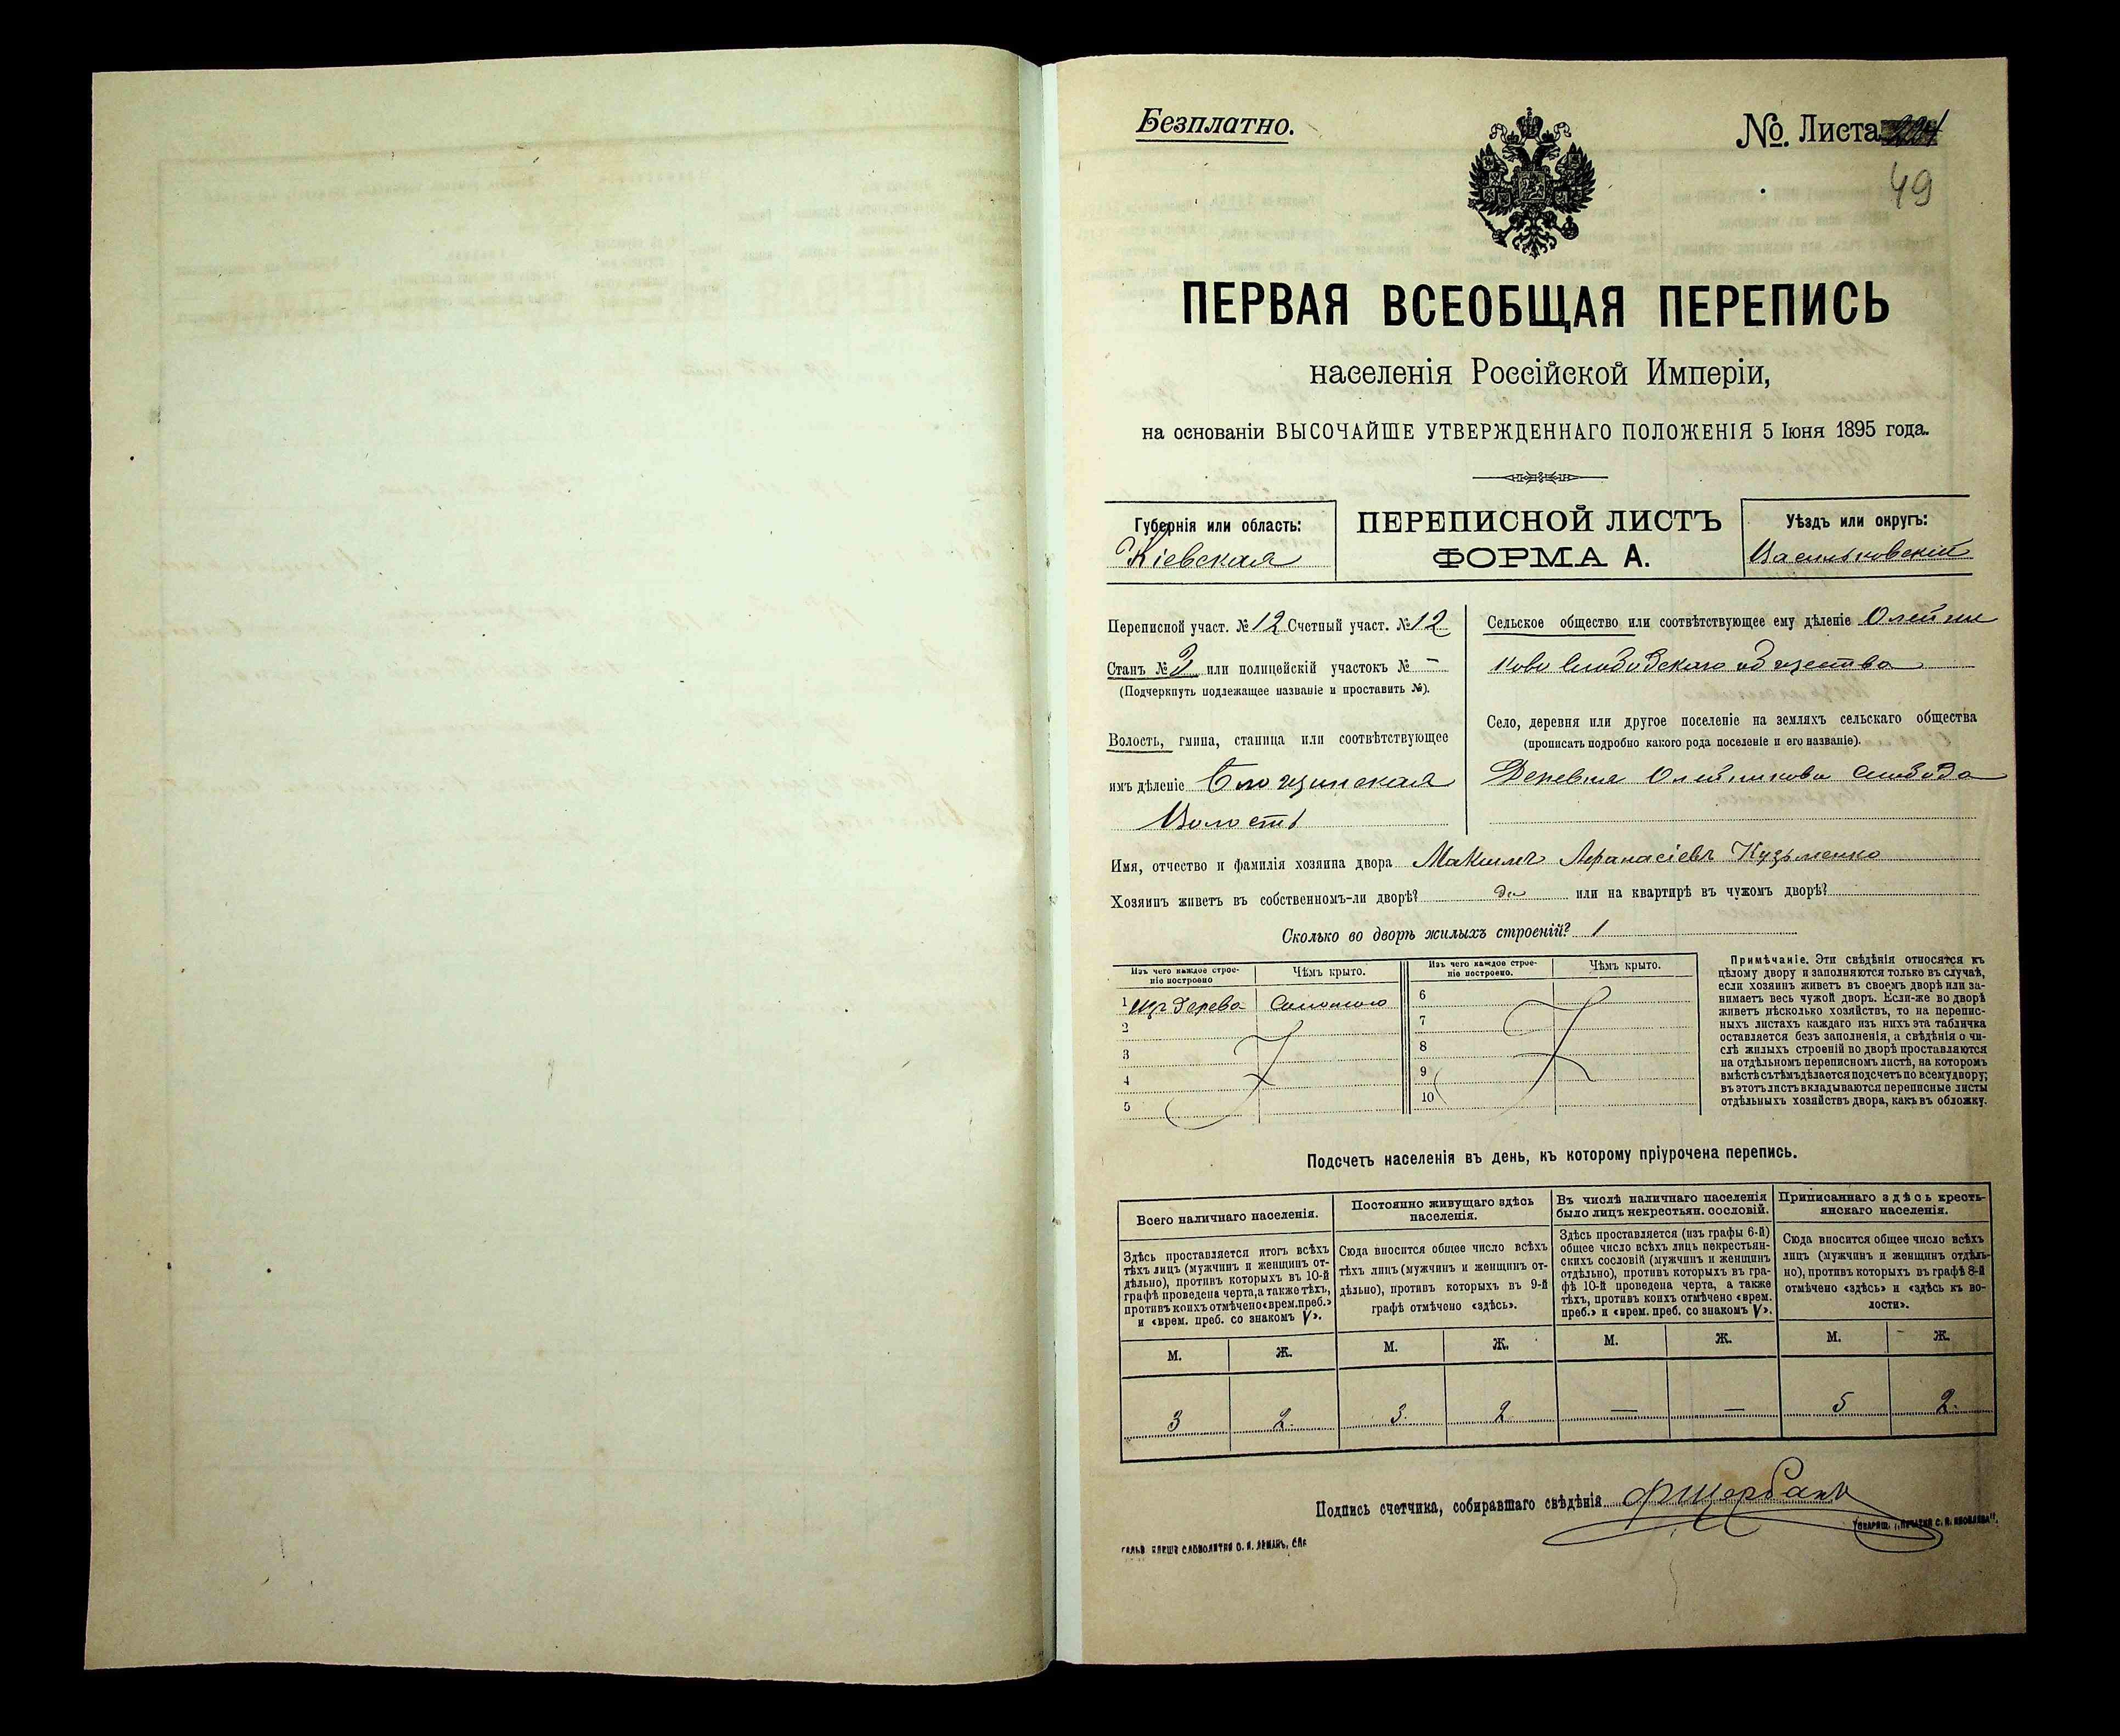 Безплатно.
№ Листа
49
ПЕРВАЯ ВСЕОБЩАЯ ПЕРЕПИСЬ
населенія Россійской Имперіи,
на основаніи ВЫСОЧАЙШЕ УТВЕРЖДЕННАГО ПОЛОЖЕНІЯ 5 Іюня 1895 года.
Губернія или область:
Кіевская
ПЕРЕПИСНОЙ ЛИСТЪ
ФОРМА А.
Уѣздъ или округъ:
Васильковскій
Переписной участ. № 12 Счетный участ. № 12
Станъ № 2 или полицейскій участокъ № —
(Подчеркнуть подлежащее названіе и проставить №).
Волость, гмина, станица или соотвѣтствующее
имъ дѣленіе
Волость
Сельское общество или соотвѣтствующее ему дѣленіе Олейни
ково Слободскаго общества
Село, деревня или другое поселеніе на земляхъ сельскаго общества
(прописать подробно какого рода поселеніе и его названіе).
Деревня Олейникова Слобода
Имя, отчество и фамилія хозяина двора Максимъ Афанасіевъ Кузьменко
Хозяинъ живетъ въ собственномъ-ли дворѣ? да или на квартирѣ въ чужомъ дворѣ?
Сколько во дворѣ жилыхъ строеній? 1
Изъ чего каждое строе-
ніе построено
Чѣмъ крыто.
Изъ чего каждое строе-
ніе построено.
Чѣмъ крыто.
1 Изъ дерева Соломою
2
3
4
5
6
7
8
9
10
Примѣчаніе. Эти свѣдѣнія относятся къ
цѣлому двору и заполняются только въ случаѣ,
если хозяинъ живетъ въ своемъ дворѣ или за-
нимаетъ весь чужой дворъ. Если-же во дворѣ
живетъ нѣсколько хозяйствъ, то на перепис-
ныхъ листахъ каждаго изъ нихъ эта табличка
оставляется безъ заполненія, а свѣдѣнія о чи-
слѣ жилыхъ строеній во дворѣ проставляются
на отдѣльномъ переписномъ листѣ, на которомъ
вмѣстѣ съ тѣмъ дѣлается подсчетъ по всему двору;
въ этотъ листъ вкладываются переписные листы
отдѣльныхъ хозяйствъ двора, какъ въ обложку.
Подсчетъ населенія въ день, къ которому пріурочена перепись.
Всего наличнаго населенія.
Постоянно живущаго здѣсь
населенія.
Въ числѣ наличнаго населенія
было лицъ некрестьян. сословій.
Приписаннаго здѣсь кресть-
янскаго населенія.
Здѣсь проставляется итогъ всѣхъ
тѣхъ лицъ (мужчинъ и женщинъ от-
дѣльно), противъ которыхъ въ 10-й
графѣ проведена черта, а также тѣхъ,
противъ коихъ отмѣчено «врем. преб.»
и «врем. преб. со знакомъ V».
Сюда вносится общее число всѣхъ
тѣхъ лицъ (мужчинъ и женщинъ от-
дѣльно), противъ которыхъ въ 9-й
графѣ отмѣчено «здѣсь».
Здѣсь проставляется (изъ графы 6-й)
общее число всѣхъ лицъ некрестьян-
скихъ сословій (мужчинъ и женщинъ
отдѣльно), противъ которыхъ въ гра-
фѣ 10-й проведена черта, а также
тѣхъ, противъ коихъ отмѣчено «врем.
преб.» и «врем. преб. со знакомъ V».
Сюда вносится общее число всѣхъ
лицъ (мужчинъ и женщинъ отдѣль-
но), противъ которыхъ въ графѣ 8-й
отмѣчено «здѣсь» и «здѣсь къ во-
лости».
М. Ж. М. Ж. М. Ж. М. Ж.
3 2. 3. 2 — — 5 2.
Подпись счетчика, собиравшаго свѣдѣнія ФЩербакъ
СЛОВОЛИТНЯ О. И. ЛЕМАНЪ, СПБ
ТОВАРИЩ. „ПЕЧАТНЯ С. П. ЯКОВЛЕВА".